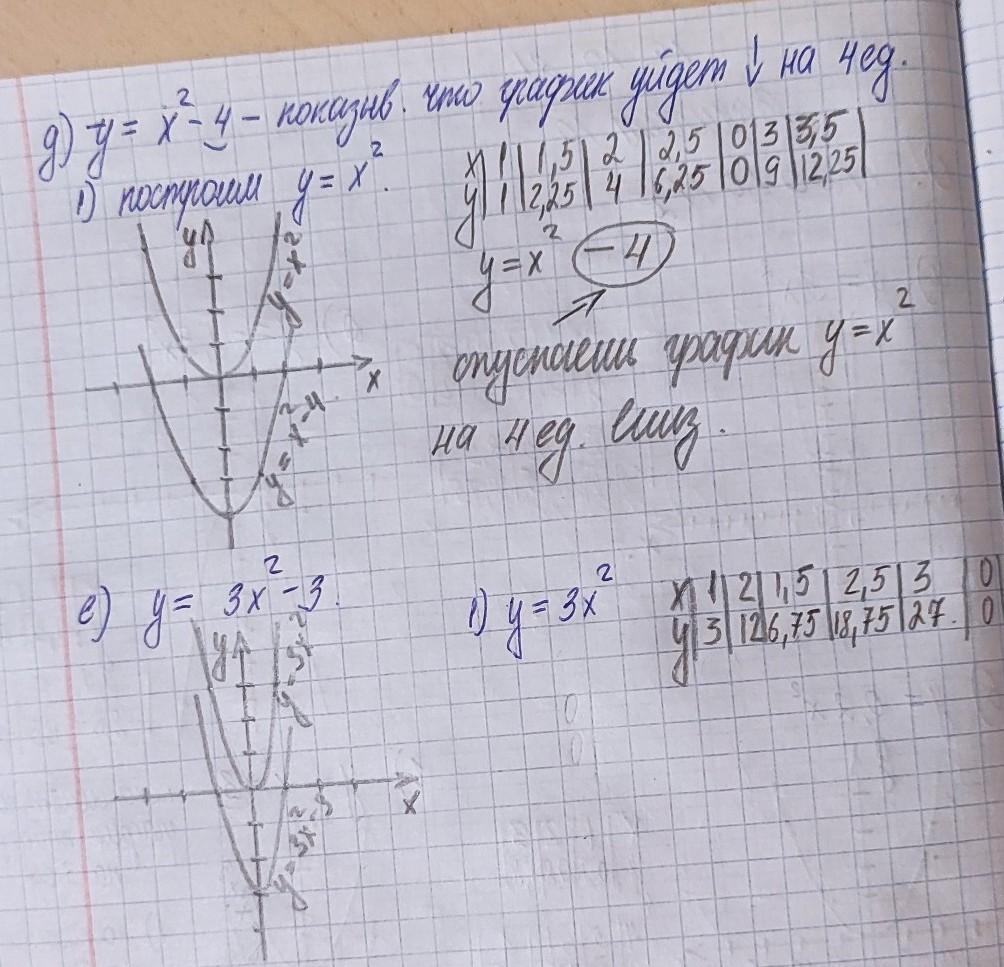 д) y = x² - 4 - показыв. что график уйдет ↓ на 4 ед.
1) построим y = x².
x | 1 | 1,5 | 2 | 2,5 | 0 | 3 | 3,5 |
y | 1 | 2,25 | 4 | 6,25 | 0 | 9 | 12,25 |
y = x² - 4
опускаем график y = x²
на 4 ед. вниз.
y
y = x²
x
y = x² - 4
е) y = 3x² - 3.
1) y = 3x²
x | 1 | 2 | 1,5 | 2,5 | 3 | 0
y | 3 | 12 | 6,75 | 18,75 | 27. | 0
y
y = 3x²
x
y = 3x² - 3